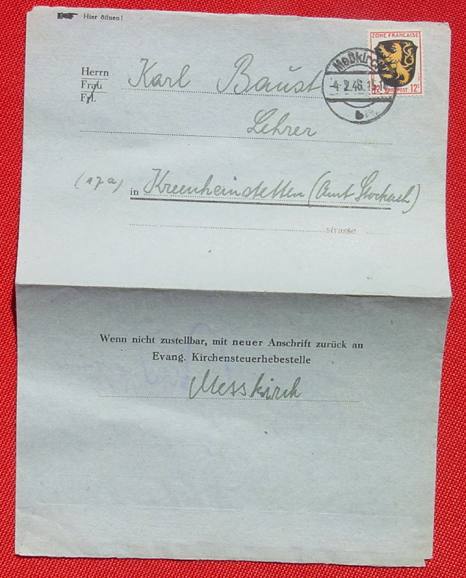 Hier öffnen!
ZONE FRANÇAISE
Meßkirch
Herrn
Frau
Frl.
Karl Baust
Lehrer
12
(17a) in Kreenheinstetten (Amt Stockach)
strasse
Wenn nicht zustellbar, mit neuer Anschrift zurück an
Evang. Kirchensteuerhebestelle
Messkirch